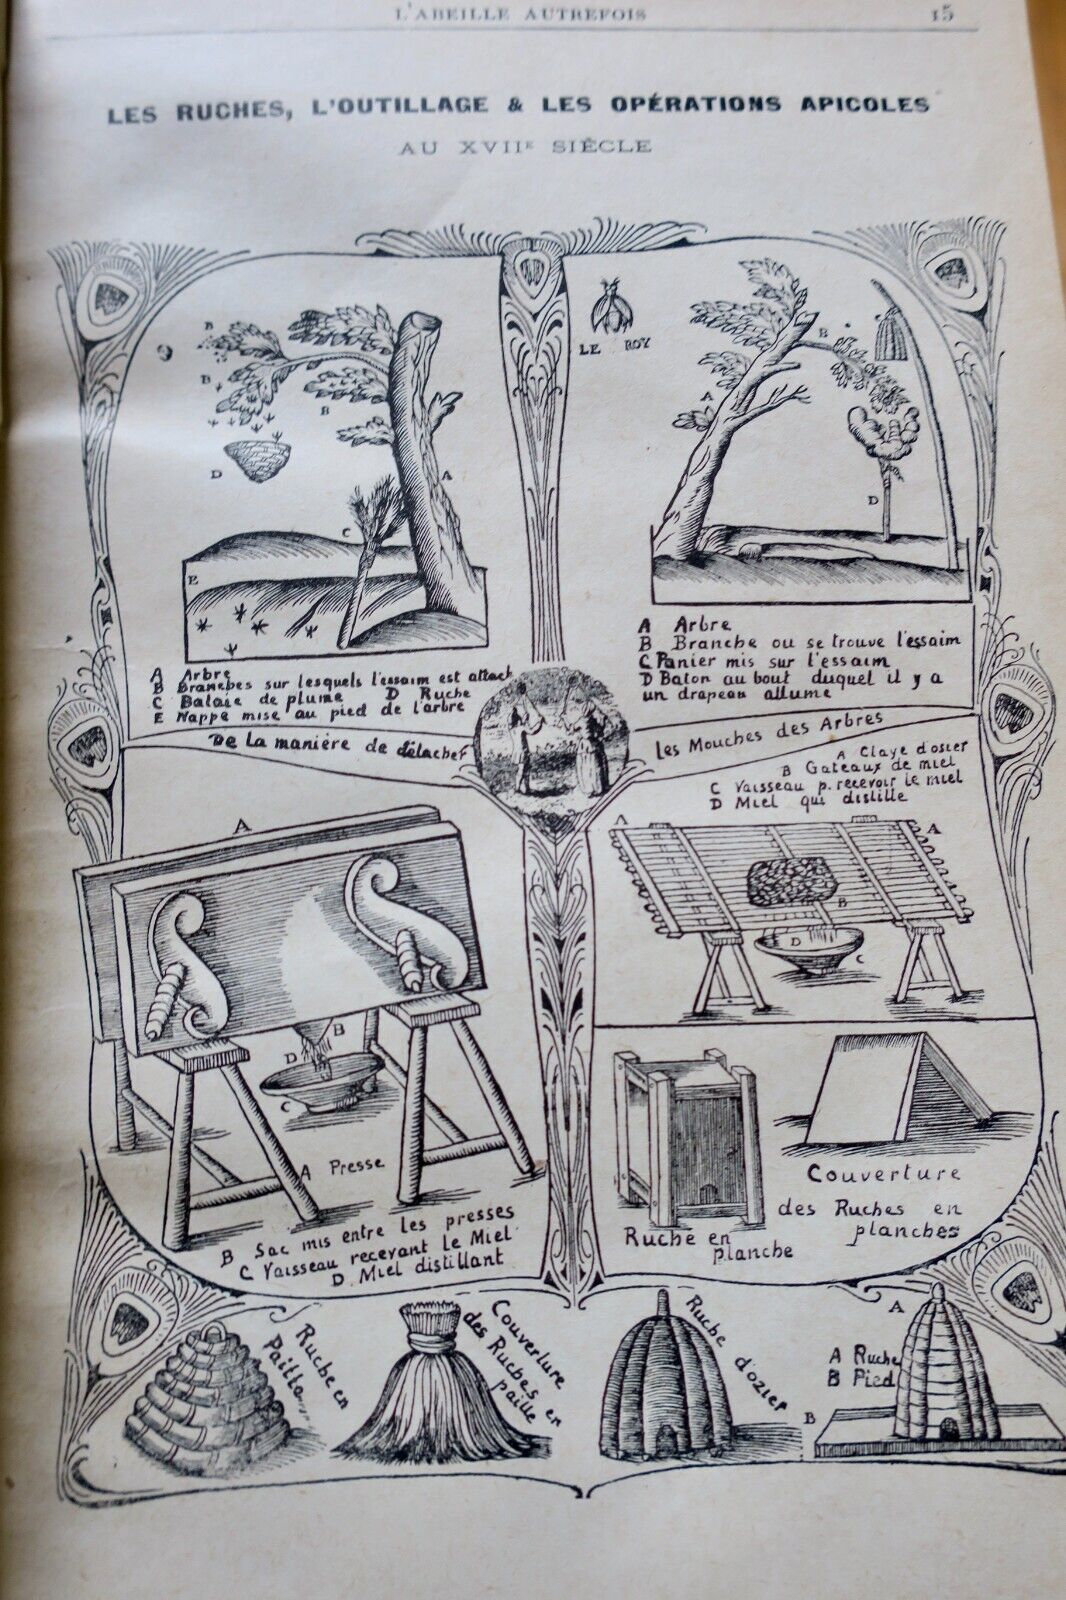 L'ABEILLE AUTREFOIS 15
LES RUCHES, L'OUTILLAGE & LES OPÉRATIONS APICOLES
AU XVIIE SIÈCLE
B
B
B
D
A
C
E
A Arbre
B Branches sur lesquels l'essaim est attach
C Balaie de plume D Ruche
E Nappe mise au pied de l'arbre
LE ROY
B
A
D
A Arbre
B Branche ou se trouve l'essaim
C Panier mis sur l'essaim
D Baton au bout duquel il y a
un drapeau allume
De la manière de détacher
les Mouches des Arbres
A Claye d'osier
B Gateaux de miel
C Vaisseau p. recevoir le miel
D Miel qui distille
A
A
B
D
C
A
B
D
C
A Presse
B Sac mis entre les presses
C Vaisseau recevant le Miel
D Miel distillant
Ruche en
planche
Couverture
des Ruches en
planches
Ruche en
Paille
Couverture
des Ruches en
paille
Ruche d'ozier
A
A Ruche
B Pied
B